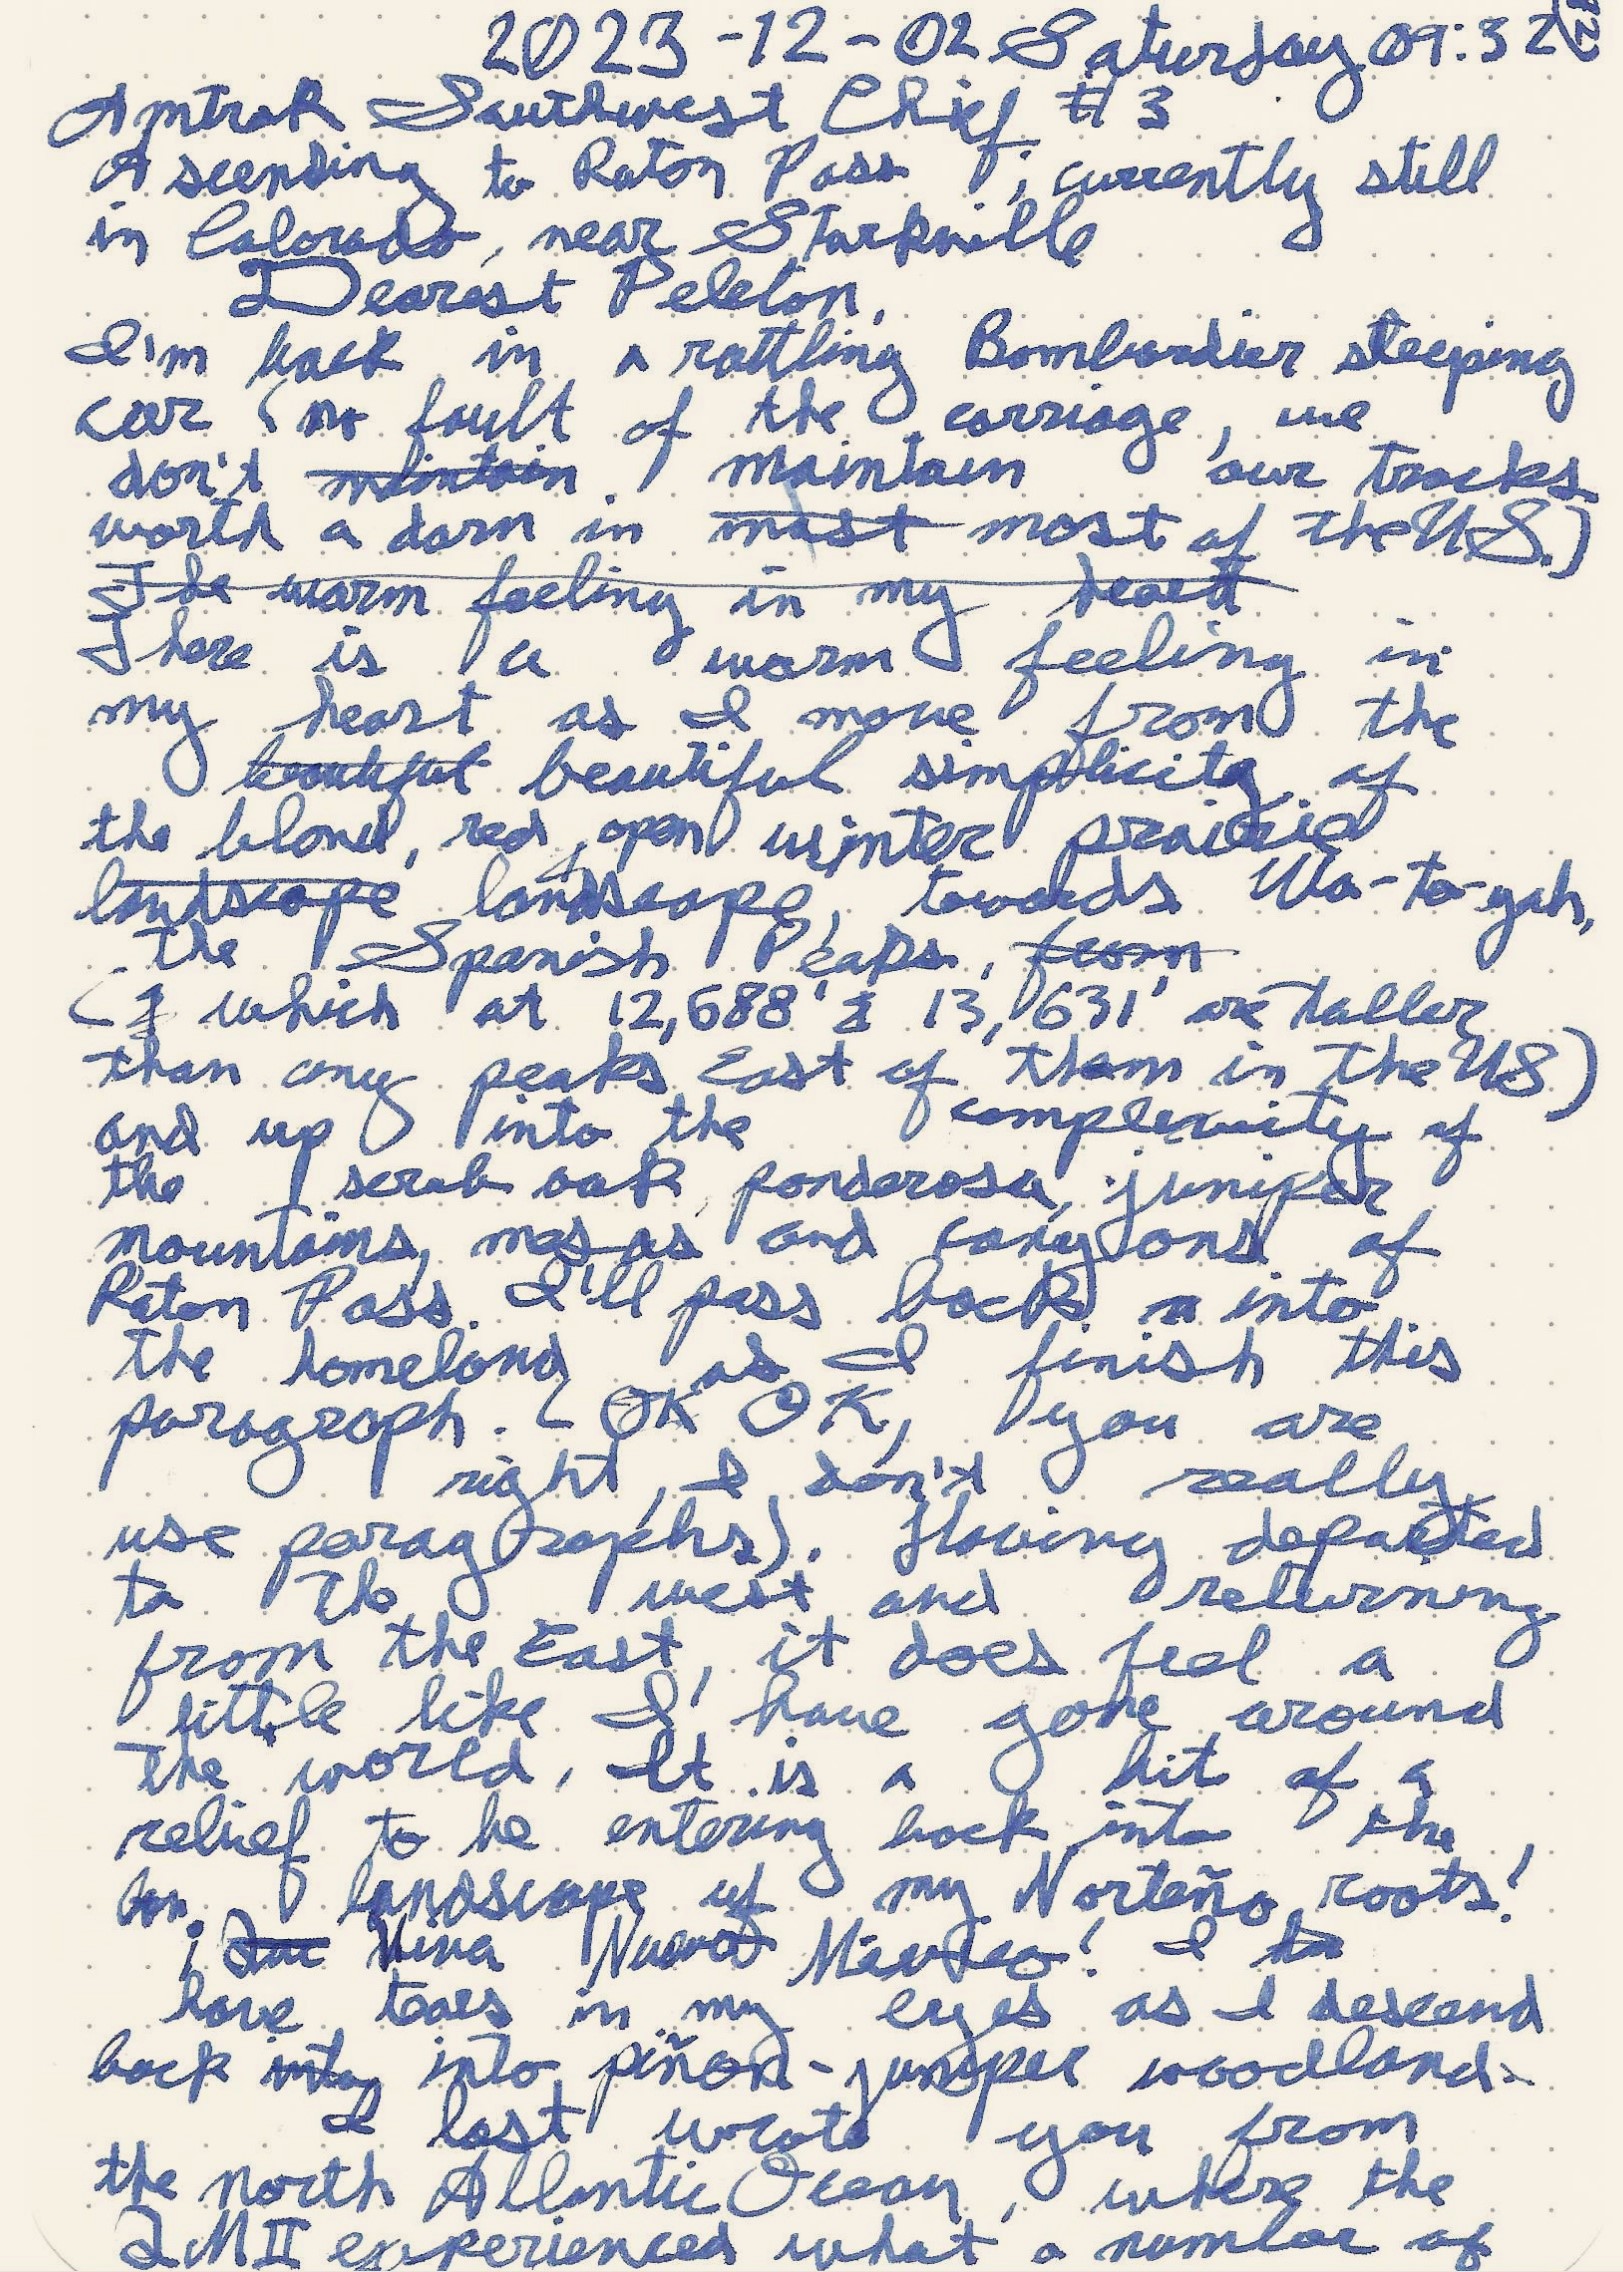 2023-12-02 Saturday 09:32
Amtrak Southwest Chief #3
Ascending to Raton Pass, currently still
in Colorado, near Starkville
Dearest Peleton,
I'm back in a rattling Bombardier sleeping
car (no fault of the carriage, we
don't maintain maintain our tracks
worth a darn in most most of the US.)
The warm feeling in my heart
There is a warm feeling in
my heart as I move from the
beautiful beautiful simplicity of
the blond, red, open winter prairie
landscape landscape, towards Wa-to-yah,
the Spanish Peaks, from
(which at 12,688' & 13,631' are taller
than any peaks East of them in the US)
and up into the complexity of
the scrub oak, ponderosa, juniper
mountains, mesas and canyons of
Raton Pass. I'll pass back into
the homeland as I finish this
paragraph. (OK OK, you are
right, I don't really
use paragraphs). Having departed
to the west and returning
from the East, it does feel a
little like I have gone around
the world. It is a bit of a
relief to be entering back into the
landscape of my Norteño roots!
¡Que Viva Nuevo Mexico! I
have tears in my eyes as I descend
back into into piñon-juniper woodland.
I last wrote you from
the North Atlantic Ocean, where the
QMII experienced what a number of